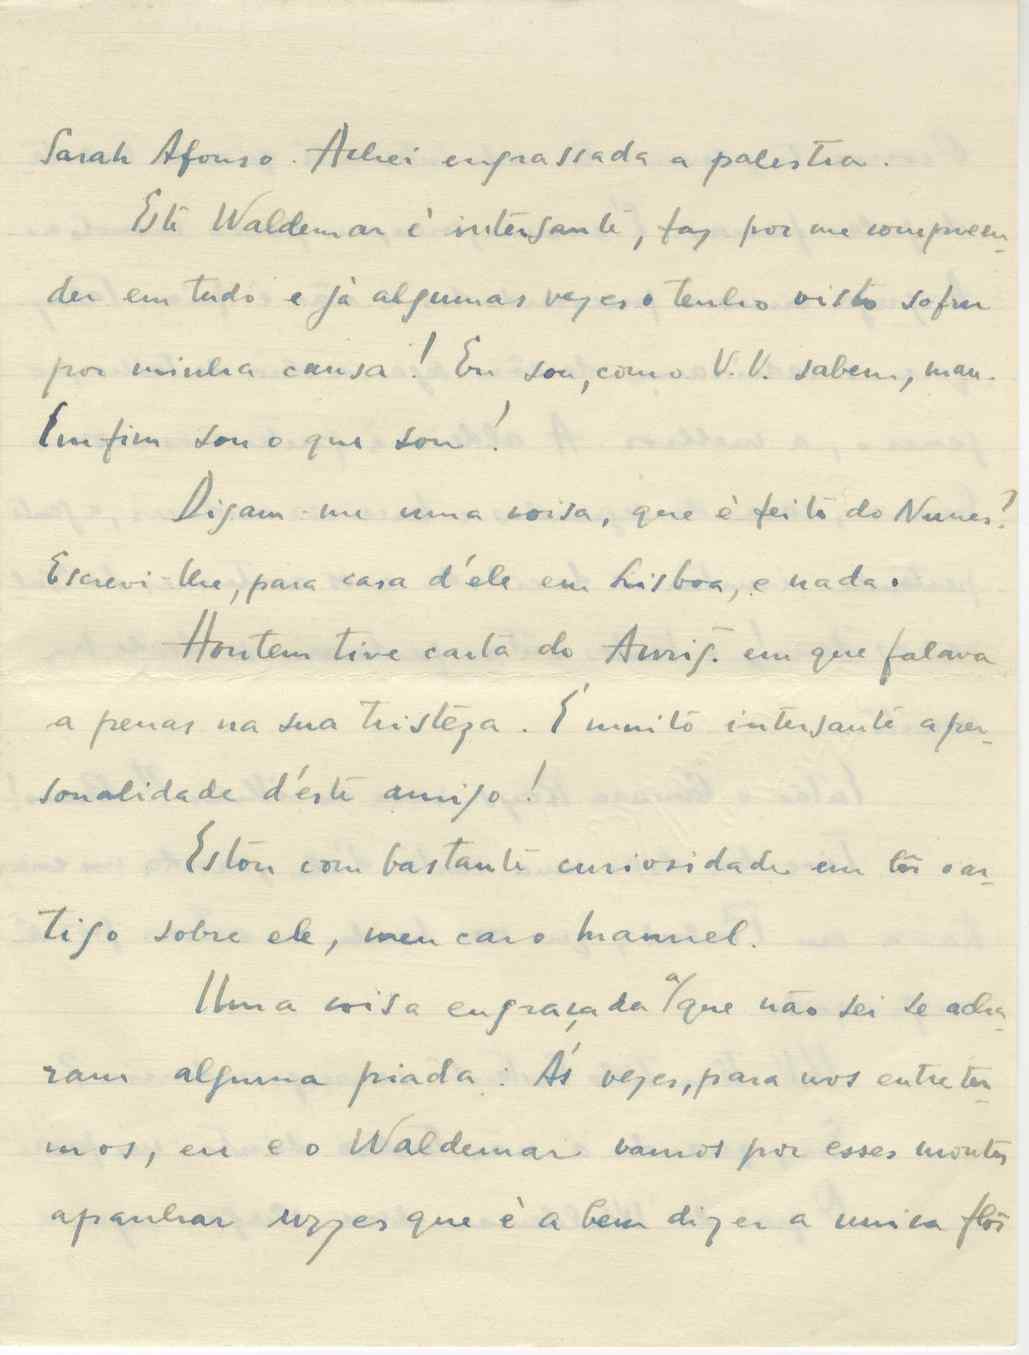 Sarah Afonso. Achei engrassada a palestra.
Este Waldemar è intersante, faz por me compreen-
der em tudo e jà algumas vezes o tenho visto sofrer
por minha causa! Eu sou, como V.V. sabem, mau.
Emfim sou o que sou!
Digam-me uma coisa, que è feito do Nunes?
Escrevi-lhe, para casa d'éle em Lisboa, e nada.
Hontem tive carta do em que falava
a penas na sua tristêza. É muito intersante a per-
sonalidade d'éste amigo!
Estou com bastante curiosidade em lêr o ar-
tigo sobre ele, meu caro Manuel.
Uma coisa engraçada a/ que não sei se acha-
ram alguma piada: Ás vezes, para nos entreter-
mos, eu e o Waldemar vamos por esses montes
apanhar urzes que è a bem dizer a unica flôr